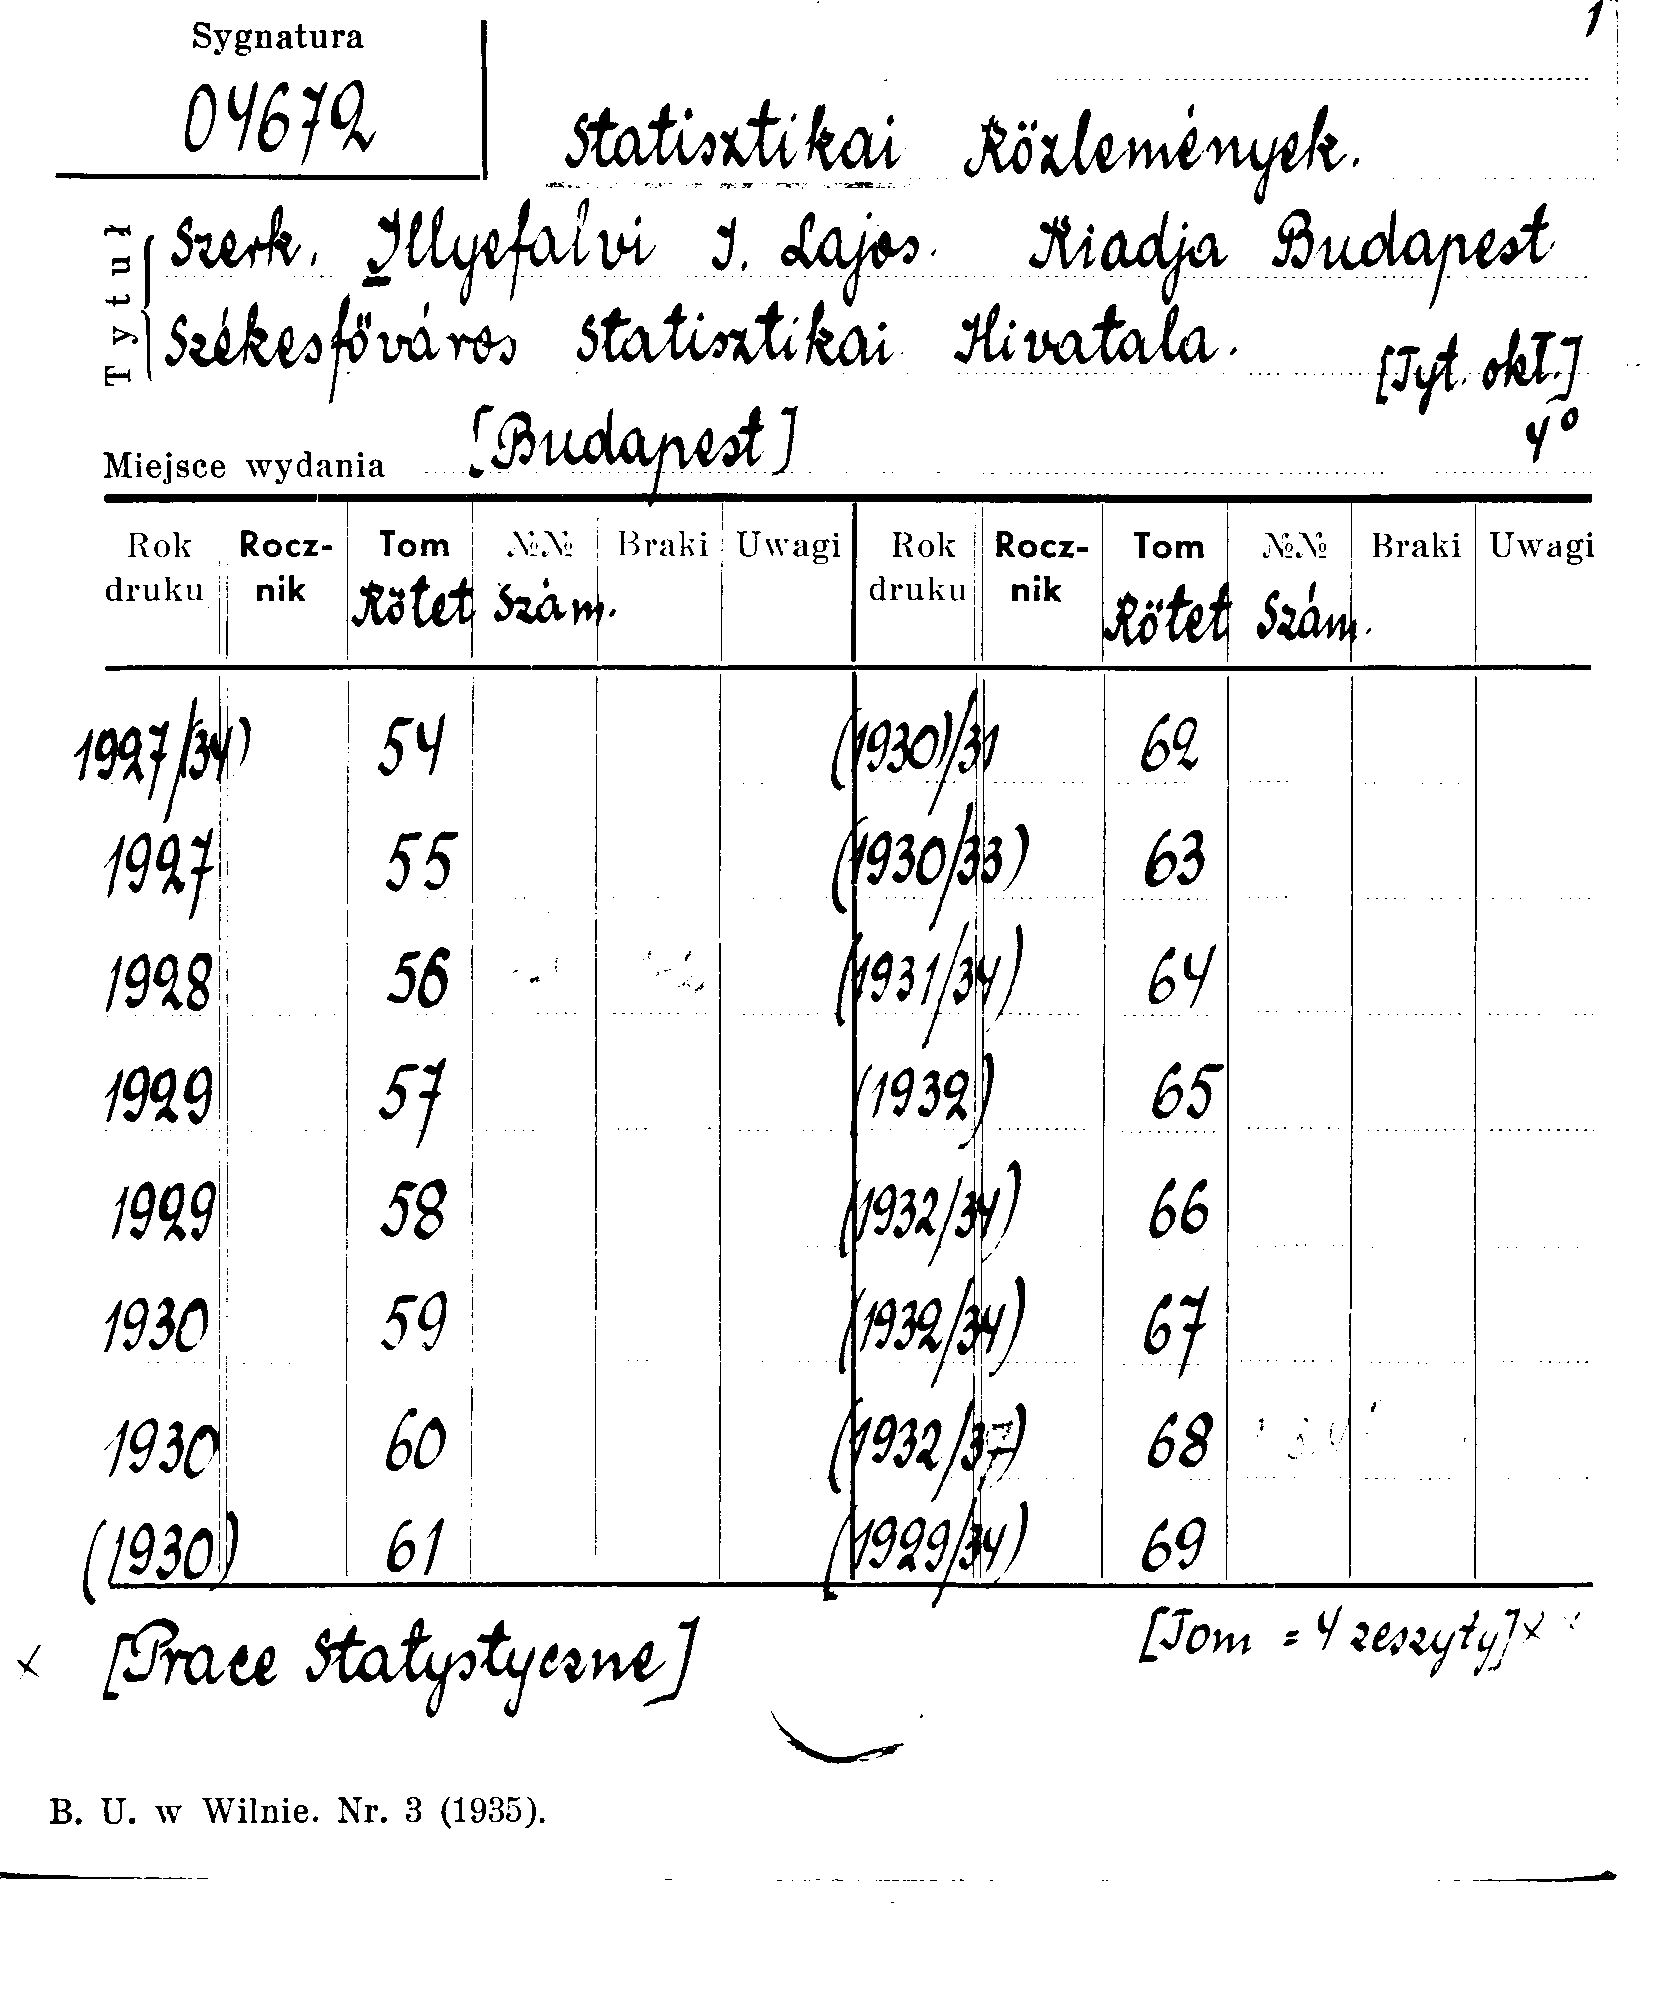 1
Sygnatura
04672
Statisztikai Közlemények.
Tytuł
Szerk. Illyefalvi I. Lajos. Kiadja Budapest
Székesfőváros Statisztikai Hivatala.
[Tyt. okł.]
4°
Miejsce wydania [Budapest]
Rok druku Rocz-nik Tom Kötet №№ Szám. Braki Uwagi Rok druku Rocz-nik Tom Kötet №№ Szám. Braki Uwagi
1927/(34) 54 (1930)/31 62
1927 55 (1930/33) 63
1928 56 (1931/34) 64
1929 57 (1932) 65
1929 58 (1932/34) 66
1930 59 (1932/34) 67
1930 60 (1932/37) 68
(1930) 61 (1929/34) 69
x [Prace Statystyczne] [Tom = 4 zeszyty] x
B. U. w Wilnie. Nr. 3 (1935).